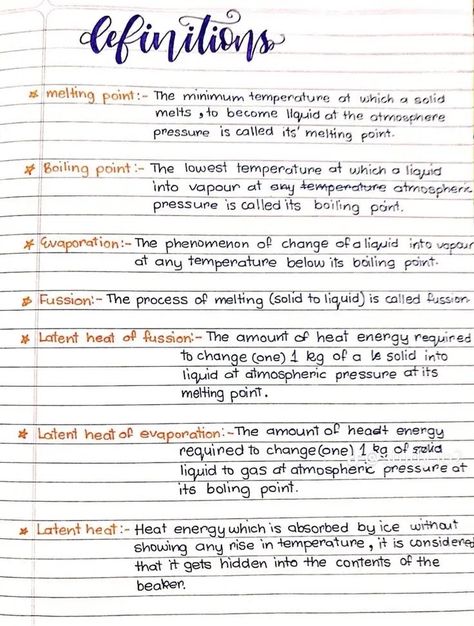 definitions
* melting point:- The minimum temperature at which a solid
melts, to become liquid at the atmosphere
pressure is called its' melting point.
* Boiling point:- The lowest temperature at which a liquid
into vapour at any temperature atmospheric
pressure is called its boiling point.
* Evaporation:- The phenomenon of change of a liquid into vapour
at any temperature below its boiling point.
* Fussion:- The process of melting (solid to liquid) is called fussion.
* Latent heat of fussion:- The amount of heat energy required
to change (one) 1 kg of a solid into
liquid at atmospheric pressure at its
melting point.
* Latent heat of evaporation:- The amount of headt energy
required to change (one) 1 kg of
liquid to gas at atmospheric pressure at
its boling point.
* Latent heat:- Heat energy which is absorbed by ice without
showing any rise in temperature, it is considered
that it gets hidden into the contents of the
beaker.